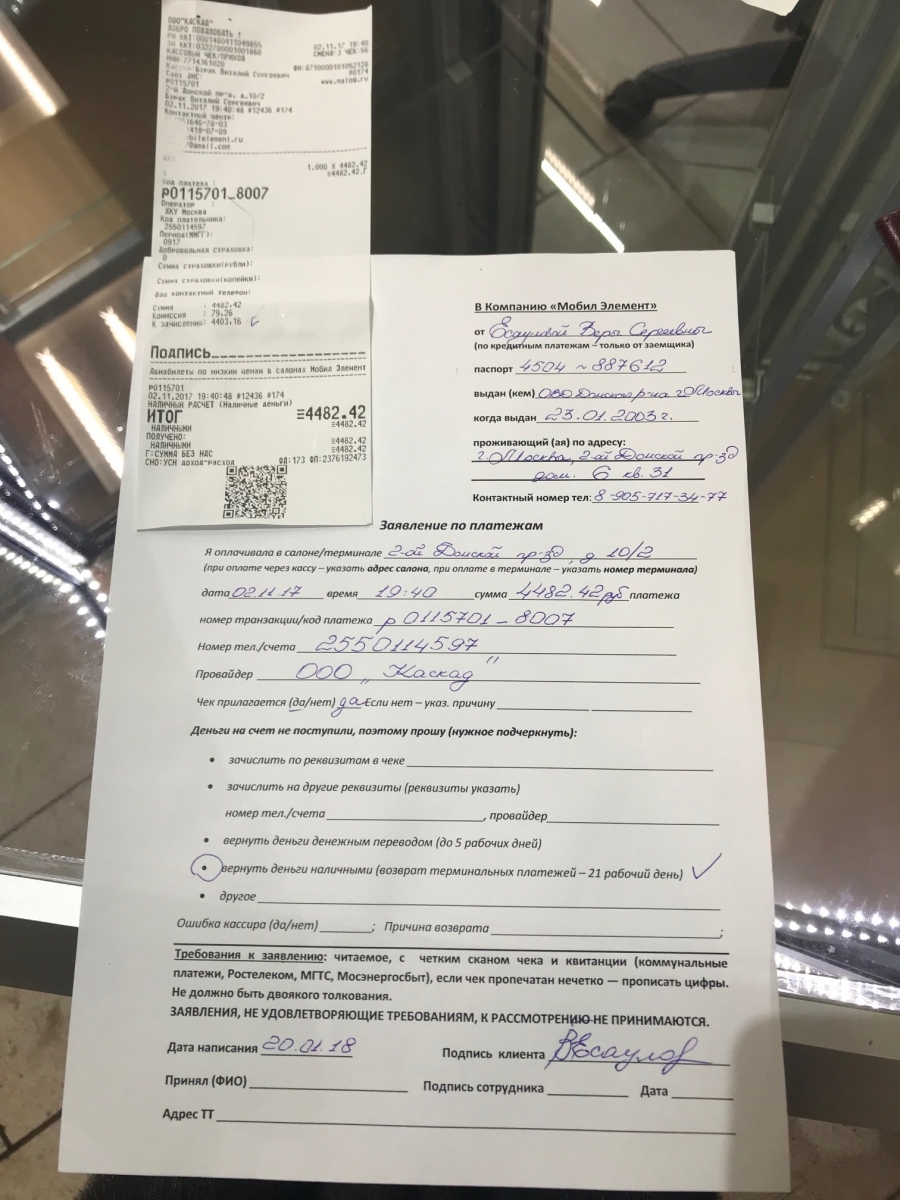 ООО"КАСКАД"
ДОБРО ПОЖАЛОВАТЬ !
РН ККТ:0001480411049855
02.11.17 19:40
ЗН ККТ:0322700001001860
СМЕНА:3 ЧЕК:56
КАССОВЫЙ ЧЕК/ПРИХОД
ИНН:7714361020
ФН:8710000101052120
Бурак Виталий Сергеевич
#0174
Сайт ФНС:
www.nalog.ru
P0115701
2-й Донской пр-д, д.10/2
Бурак Виталий Сергеевич
02.11.2017 19:40:48 #12436 #174
Контактный центр:
)646-70-03
)419-07-09
bilelement.ru
@gmail.com
1.000 X 4482.42
≡4482.42_Г
Код платежа :
P0115701_8007
Оператор :
ЖКУ Москва
Код плательщика:
2550114597
Период(ММГГ):
0917
Добровольная страховка:
0
Сумма страховки(рубли):
Сумма страховки(копейки):
Ваш контактный телефон:
Сумма : 4482.42
Комиссия : 79.26
К зачислению: 4403.16
Подпись
Авиабилеты по низким ценам в салонах Мобил Элемент
P0115701
02.11.2017 19:40:48 #12436 #174
НАЛИЧНЫЙ РАСЧЕТ (Наличные деньги)
ИТОГ ≡4482.42
НАЛИЧНЫМИ ≡4482.42
ПОЛУЧЕНО:
НАЛИЧНЫМИ ≡4482.42
Г:СУММА БЕЗ НДС ≡4482.42
СНО:УСН ДОХОД-РАСХОД ФД:173 ФП:2376192473
В Компанию «Мобил Элемент»
от Есауловой Веры Сергеевны
(по кредитным платежам – только от заемщика)
паспорт 4504 ~ 887612
выдан (кем) ОВД Донского р-на г. Москвы
когда выдан 23.01.2003 г.
проживающий (ая) по адресу:
г. Москва, 2-ой Донской пр-зд
дом. 6 кв. 31
Контактный номер тел: 8-905-717-34-77
Заявление по платежам
Я оплачивала в салоне/терминале 2-ой Донской пр-зд, д 10/2
(при оплате через кассу – указать адрес салона, при оплате в терминале – указать номер терминала)
дата 02.11.17 время 19:40 сумма 4482.42 руб платежа
номер транзакции/код платежа р 0115701 – 8007
Номер тел./счета 2550114597
Провайдер ООО „Каскад"
Чек прилагается (да/нет) да Если нет – указ. причину
Деньги на счет не поступили, поэтому прошу (нужное подчеркнуть):
• зачислить по реквизитам в чеке
• зачислить на другие реквизиты (реквизиты указать)
номер тел./счета , провайдер
• вернуть деньги денежным переводом (до 5 рабочих дней)
• вернуть деньги наличными (возврат терминальных платежей – 21 рабочий день)
• другое
Ошибка кассира (да/нет) ; Причина возврата ;
Требования к заявлению: читаемое, с четким сканом чека и квитанции (коммунальные
платежи, Ростелеком, МГТС, Мосэнергосбыт), если чек пропечатан нечетко — прописать цифры.
Не должно быть двоякого толкования.
ЗАЯВЛЕНИЯ, НЕ УДОВЛЕТВОРЯЮЩИЕ ТРЕБОВАНИЯМ, К РАССМОТРЕНИЮ НЕ ПРИНИМАЮТСЯ.
Дата написания 20.01.18 Подпись клиента ВЕсаулов
Принял (ФИО) Подпись сотрудника Дата
Адрес ТТ